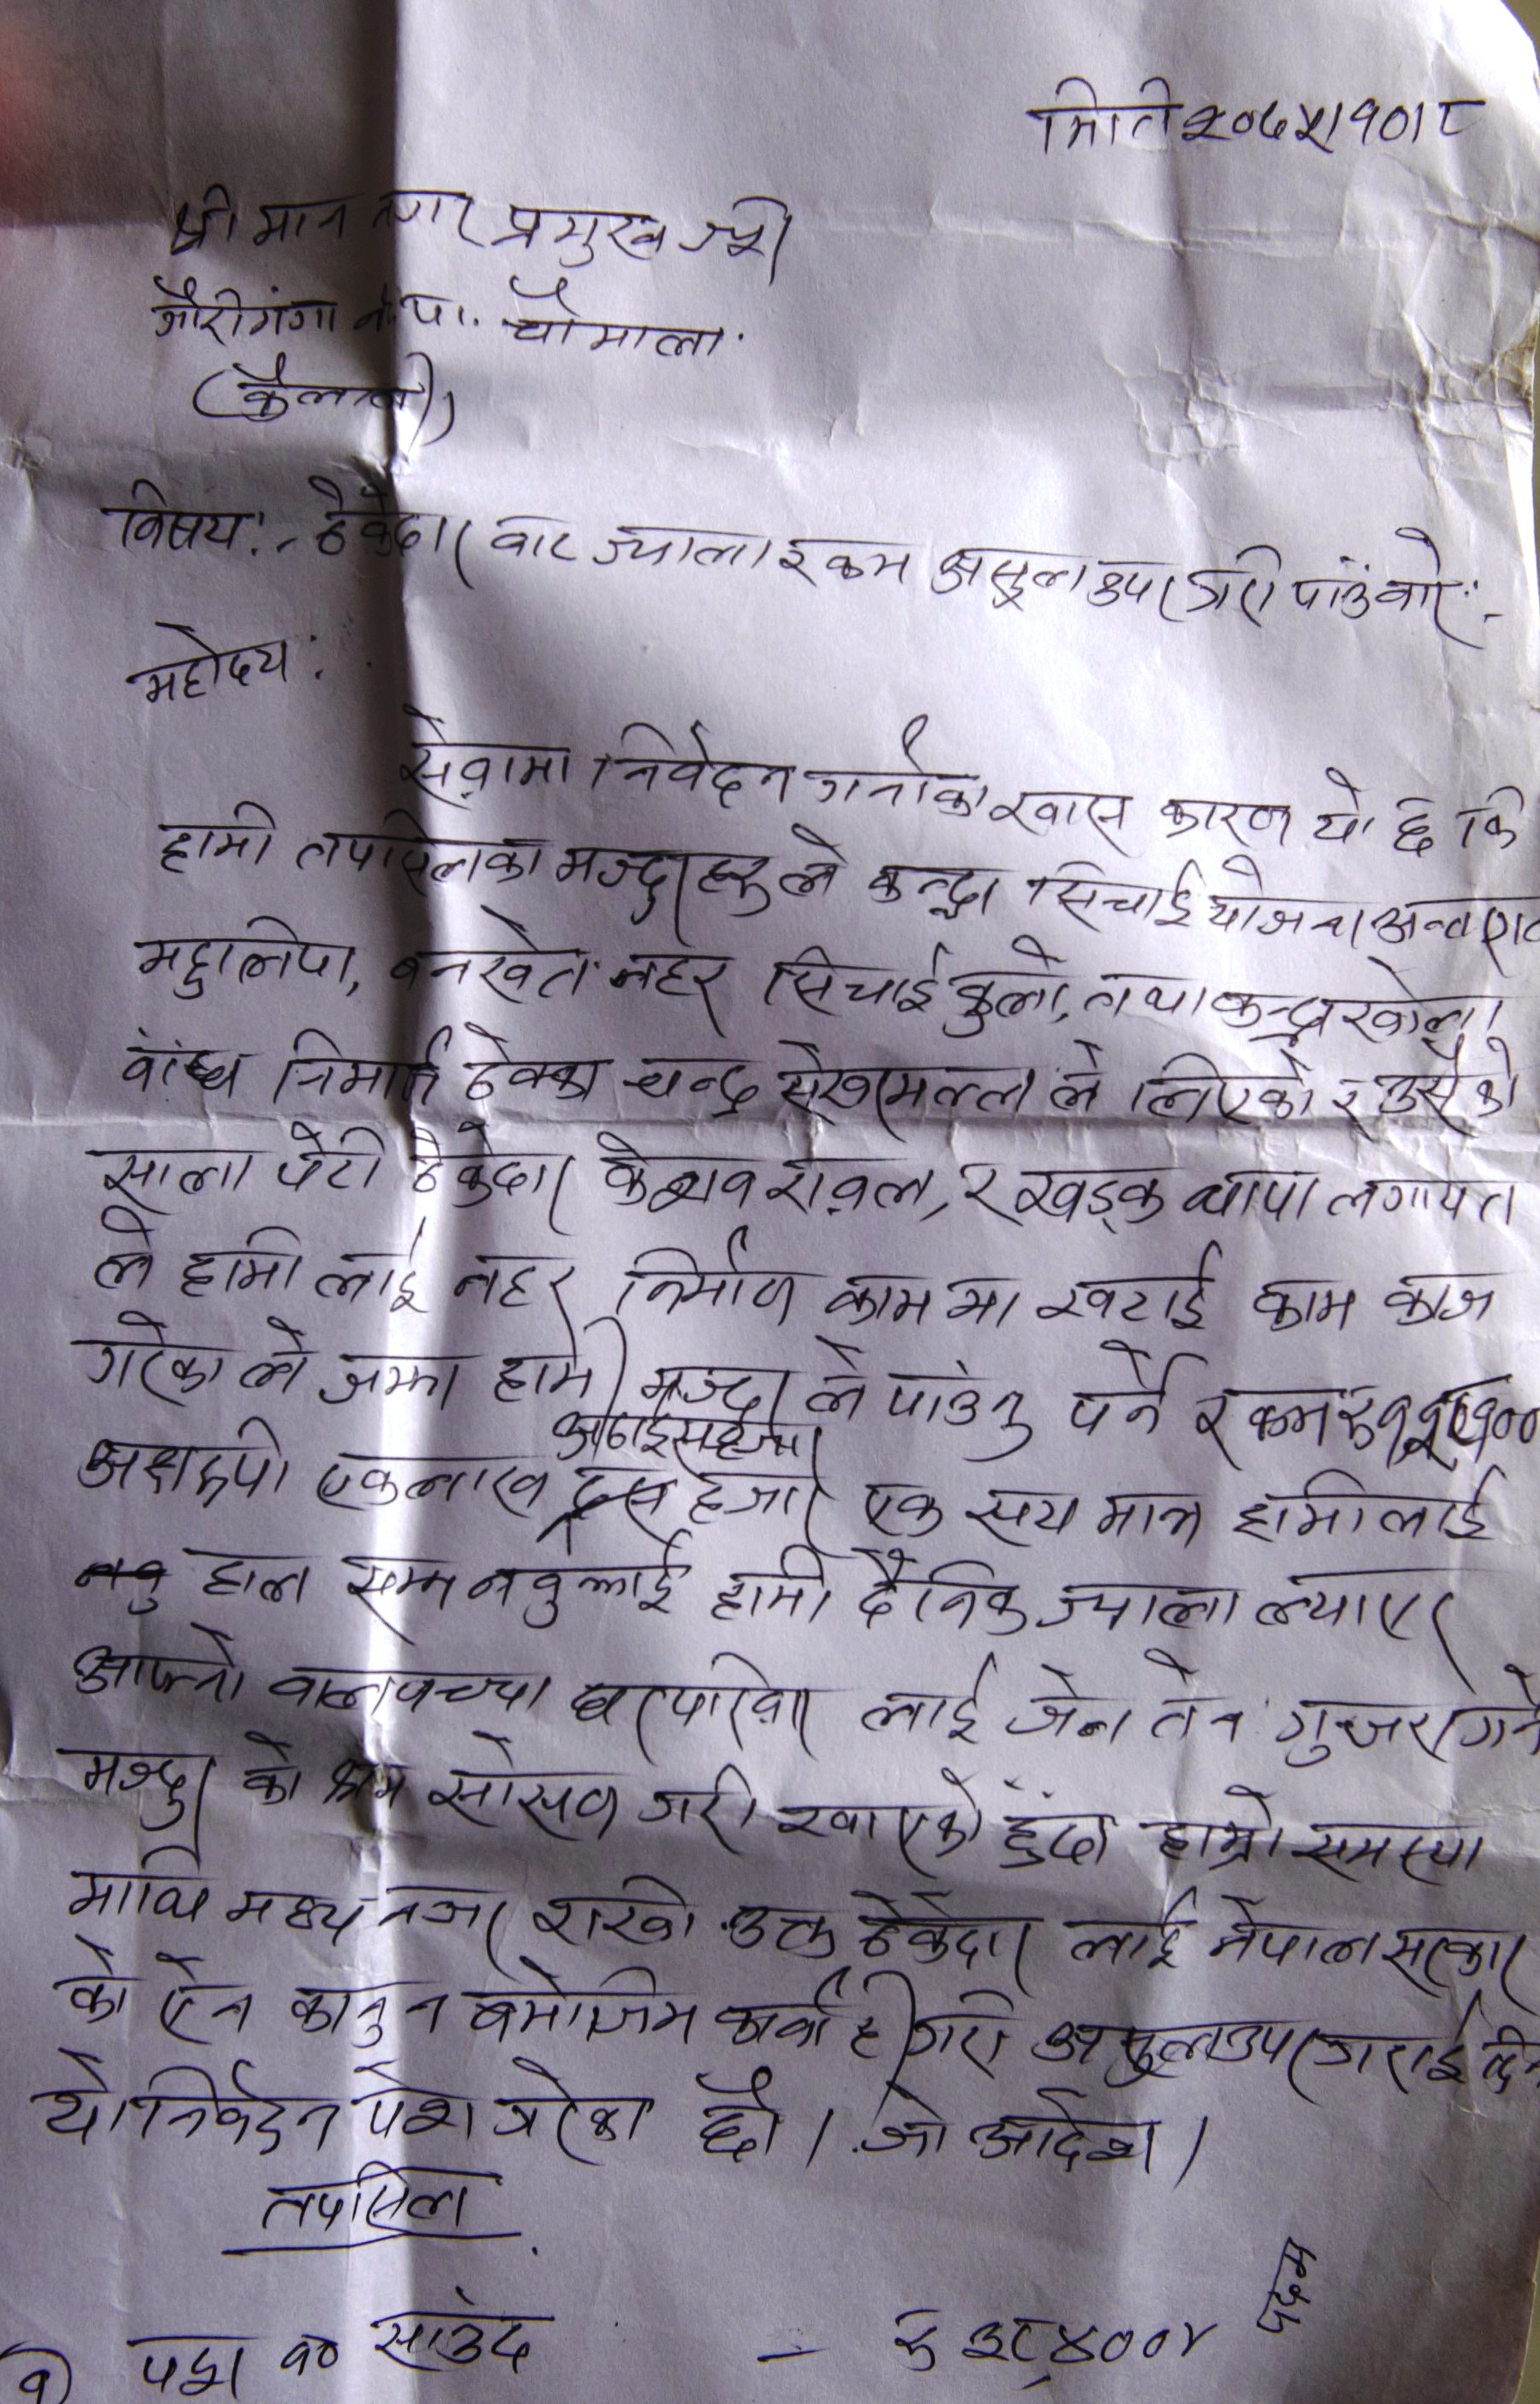 मिति २०७५।१०।८
श्रीमान नगर प्रमुख ज्यू
गौरीगंगा न.पा. चौमाला.
(कैलाली)
विषय:- ठेकेदार वाट ज्याला रकम असुल उपर गरी पाँउ वारे:-
महोदय:
सेवामा निवेदन गर्नाका खास कारण यो छ कि
हामी तपसिलका मज्दुरहरु ले कन्द्रा सिचाई योजना अन्तरगत
महुलिया, वनखेत नहर सिचाई कुलो, तथा कन्द्रा खोला
वांध निमार्ण ठेक्का चन्द्र सेखर मल्ल ले लिएको र उसैको
साला पेटी ठेकुदार केशव रावल, र खड्क थापा लगायत
ले हामी लाई नहर निर्माण काम मा खटाई काम काज
गरेका ले जम्मा हामी मज्दुर ले पांउनु पर्ने रकम रु
अठाइस हजार
अक्षरुपी एकलाख दस हजार एक सय मात्र हामीलाई
नवु हाल सम्म नवुझाई हामी दैनिक ज्याला ल्याएर
आफ्नो वालवच्चा घरपरिवार लाई जेन तेन गुजरा गर्ने
मज्दुर को श्रम सोसण गरी खाएको हुंदा हाम्रो समस्या
माथि मध्य नजर राखी उक्त ठेकेदार लाई नेपाल सरकार
को ऐन कानुन वमोजिम कार्वाही गरी असुल उपर गराई दिन
यो निवेदन पेश गरेका छौ। जो आदेश।
तपसिल
१) पदम व० साउद - रु ३८,४००४
पदम